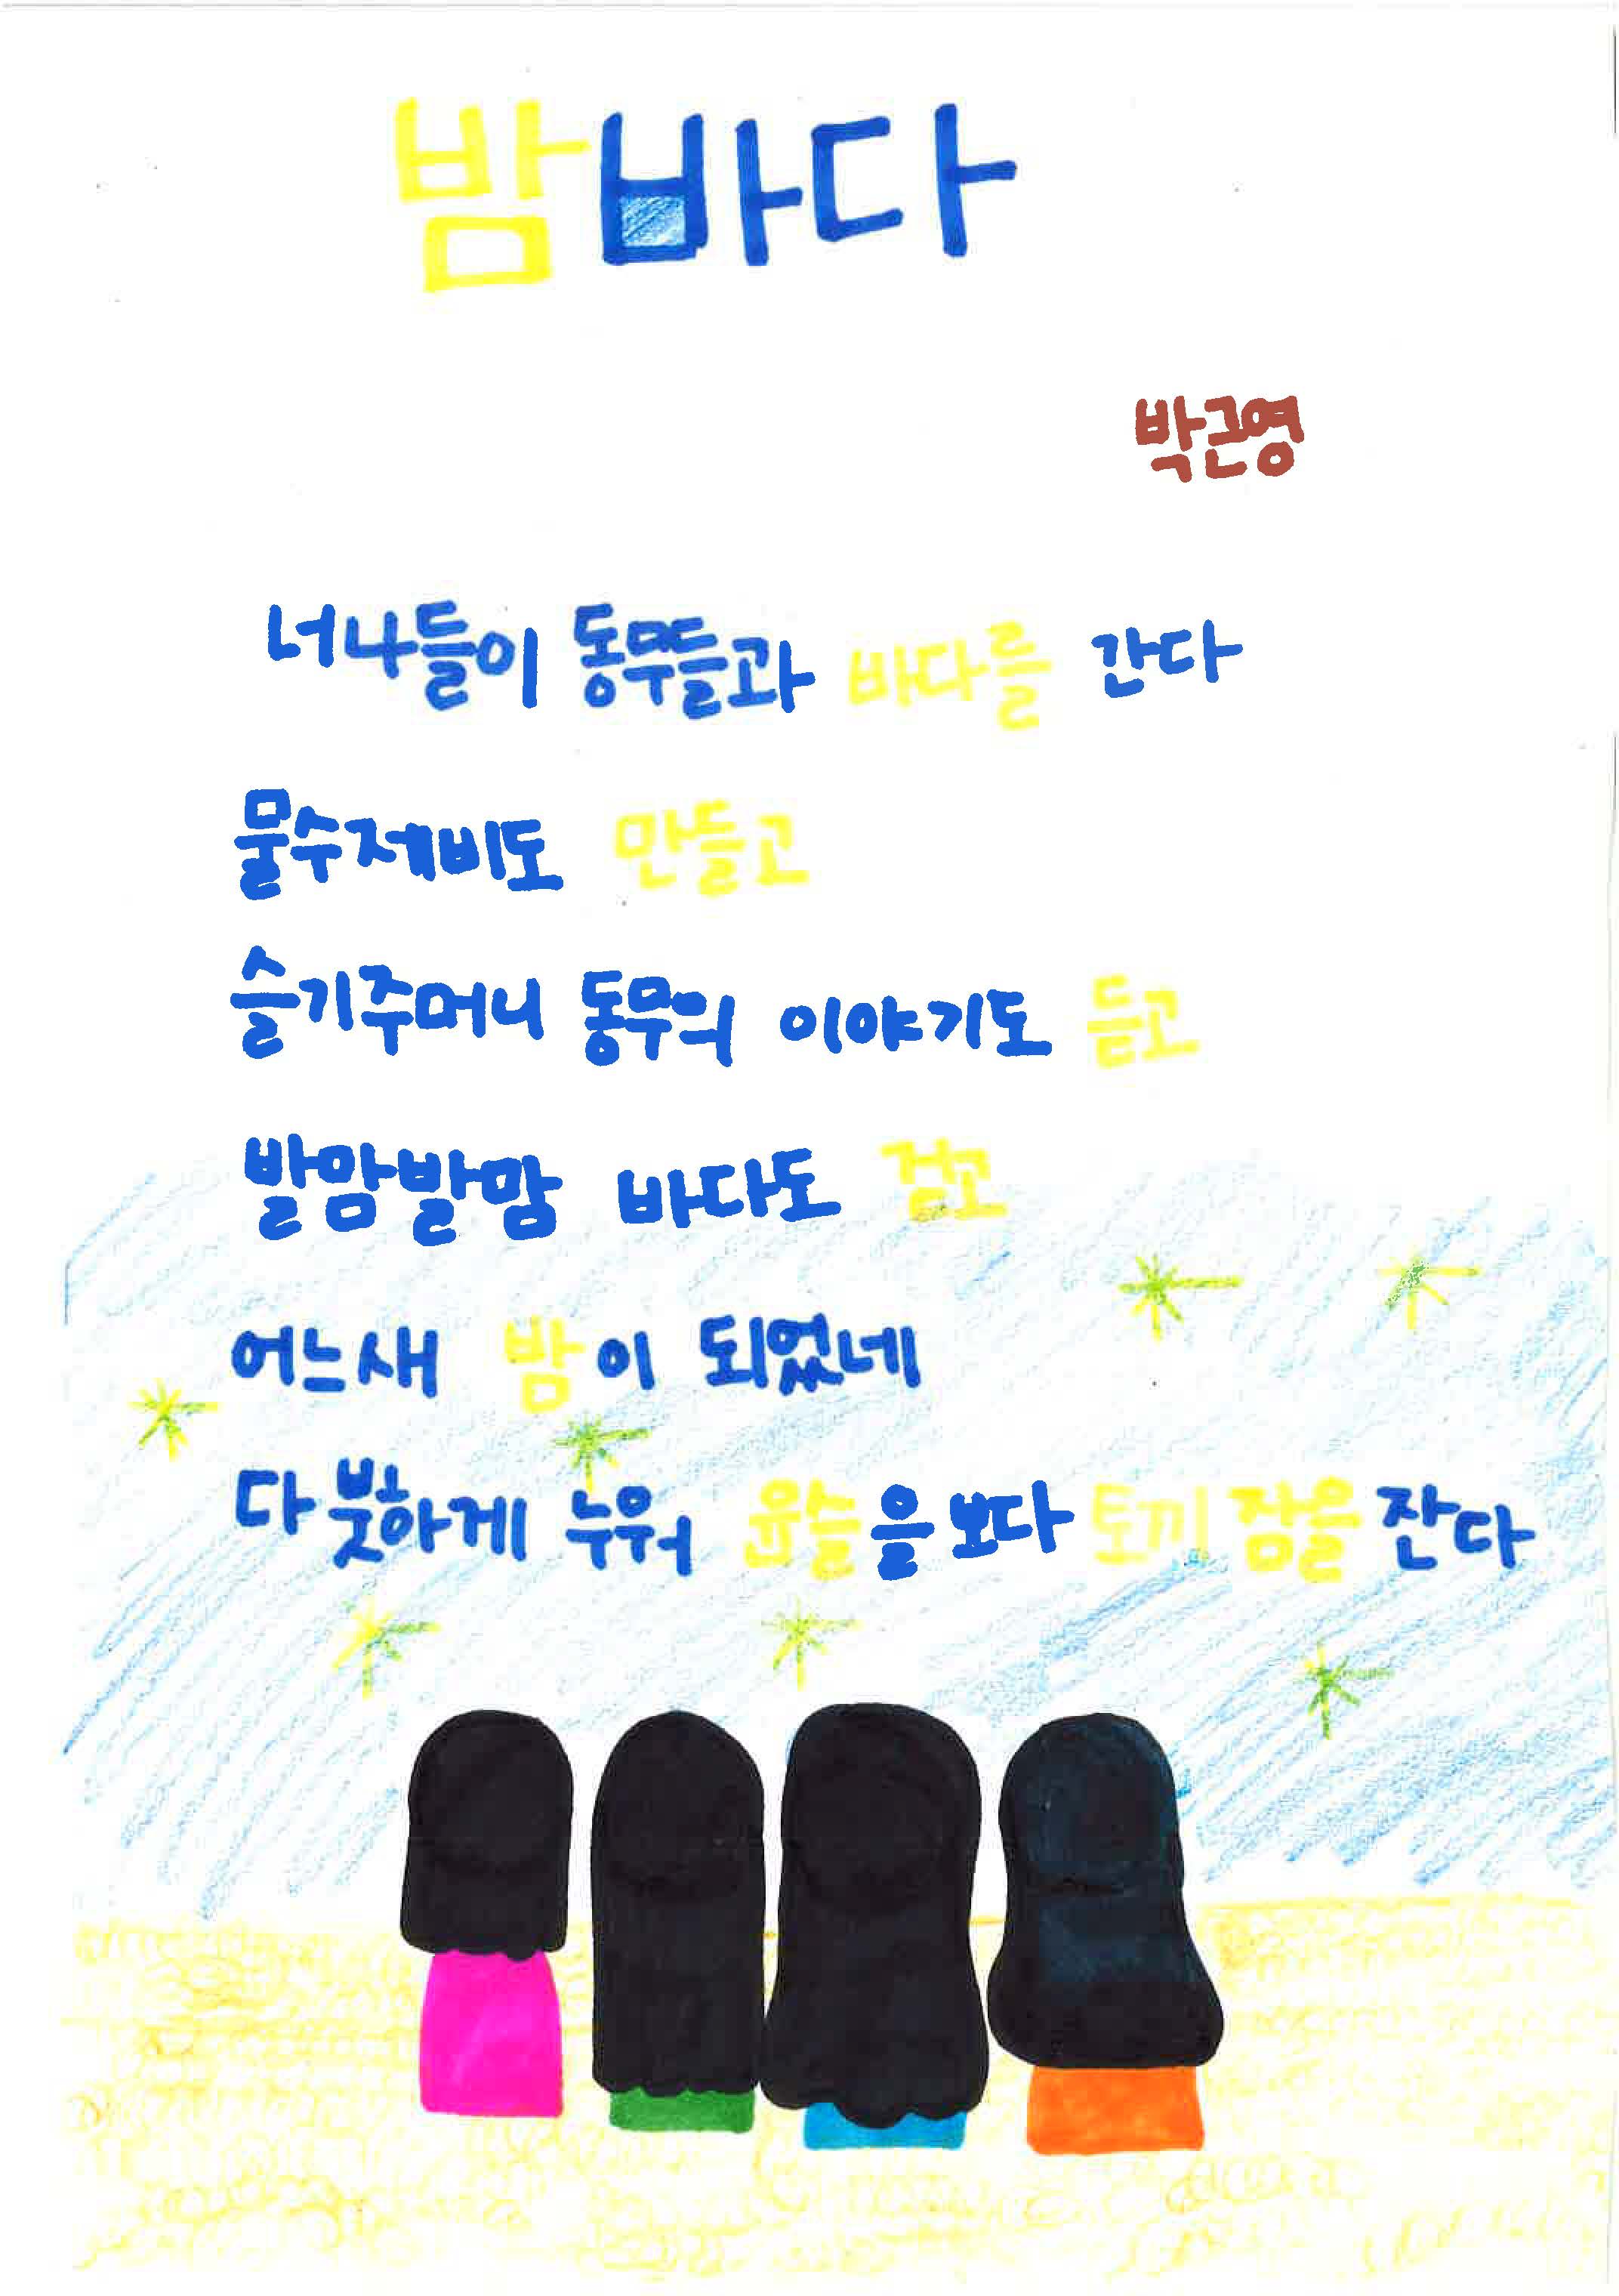 밤바다
박근영
너나들이 동무들과 바다를 간다
물수제비도 만들고
슬기주머니 동무의 이야기도 듣고
발맘발맘 바다도 걷고
어느새 밤이 되었네
다붓하게 누워 윤슬을 보다 토끼잠을 잔다